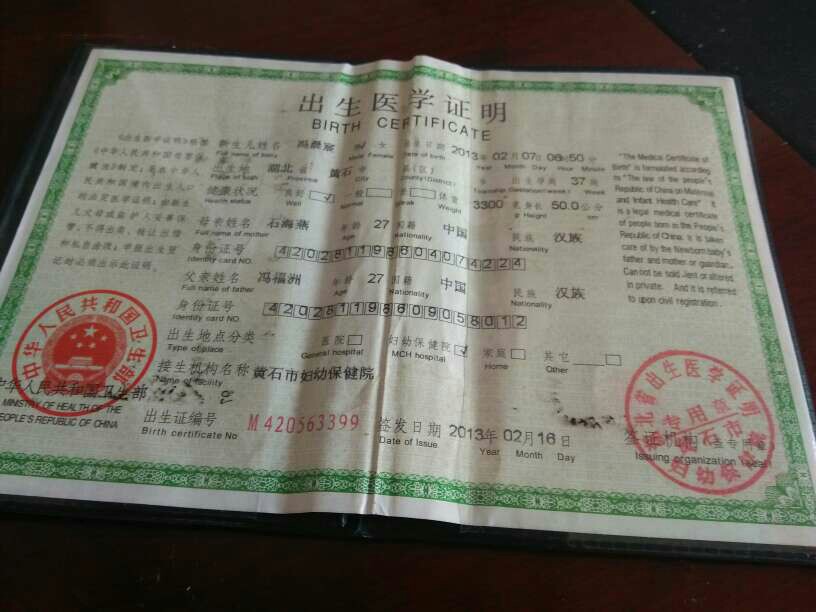 出生医学证明
BIRTH CERTIFICATE
《出生医学证明》根据
《中华人民共和国母婴保
新生儿姓名 冯晨宸 女 出生日期 2013年02月07日06时50分
Full name of baby Male Female Date of birth Year Month Day Hour Minute
出生地 湖北省 黄石市 县(区) 出生孕周 37周
Place of birth Province City County(District) Gestation(week) Week
健康状况 良好 ☑ 一般 □ 弱 □ 体重 3300克 身长 50.0公分
Health status Well Normal Weak Weight g Height cm
母亲姓名 石海燕 年龄 27 国籍 中国 民族 汉族
Full name of mother Age Nationality Nationality
身份证号 420281198604074224
Identity card NO.
父亲姓名 冯福洲 年龄 27 国籍 中国 民族 汉族
Full name of father Age Nationality Nationality
身份证号 420281198609058012
Identity card NO.
出生地点分类 医院 □ 妇幼保健院 ☑ 家庭 □ 其它
Type of place General hospital MCH hospital Home Other
接生机构名称 黄石市妇幼保健院
Name of facility
出生证编号 M420563399 签发日期 2013年02月16日 签证机构(盖专用章)
Birth certificate No Date of Issue Year Month Day Issuing organization (seal)
"The Medical Certificate of
Birth" is formulated according
to "The law of the people's
Republic of China on Maternal
and Infant Health Care" It
is a legal medical certificate
of people born in the People's
Republic of China. it is taken
care of by the Newborn baby's
father and mother or guardian.
Can not be sold ,lent or altered
in private. And it is referred
to upon civil registration.
中华人民共和国卫生部
MINISTRY OF HEALTH OF THE
PEOPLE'S REPUBLIC OF CHINA
中华人民共和国卫生部
湖北省出生医学证明
专用章